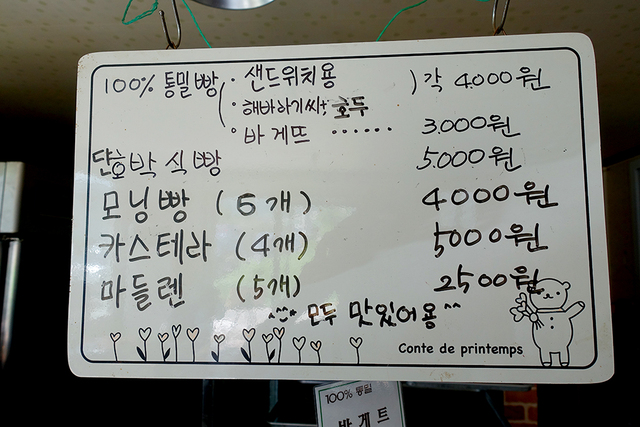 100% 통밀빵 ( · 샌드위치용 ) 각 4.000원
· 해바하기씨, 호두
· 바게뜨 ...... 3.000원
단호박 식빵 5.000원
모닝빵 (6개) 4000원
카스테라 (4개) 5000원
마들렌 (5개) 2500원
^^ 모두 맛있어용 ^^
Conte de printemps
100% 통밀
바게트